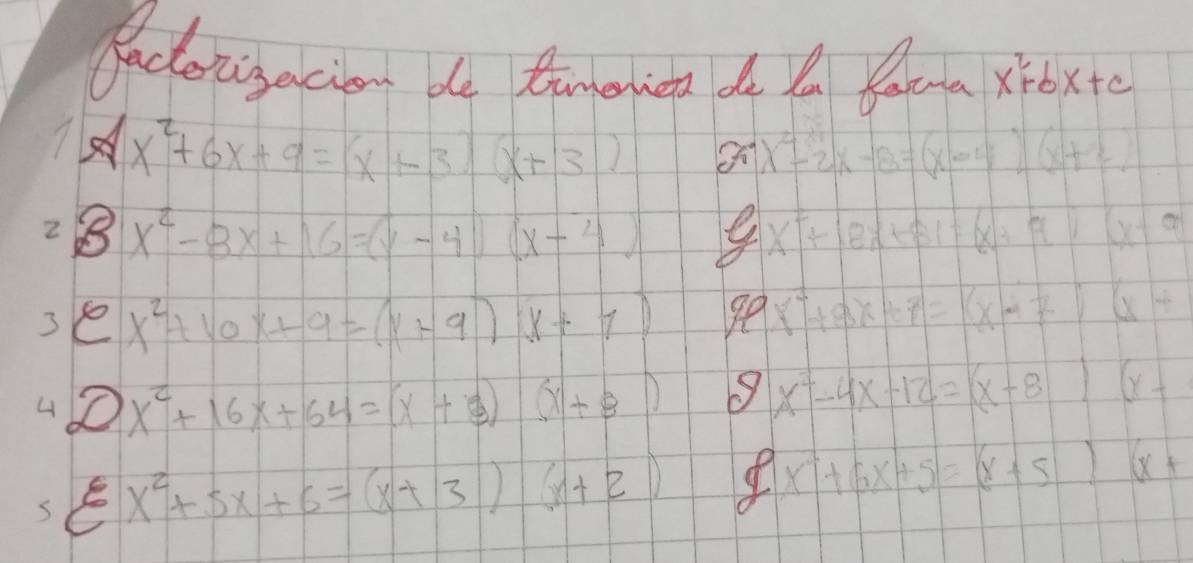 Factorizacion de trinomios de la forma x²+bx+c
1 A x²+6x+9=(x+3) (x+3)
2 B x²-8x+16=(x-4) (x-4)
3 C x²+10x+9=(x+9) (x+1)
4 D x²+16x+64=(x+8) (x+8)
5 E x²+5x+6=(x+3) (x+2)
F x²-2x-8=(x-4) (x+2)
G x²+18x+81=(x+9) (x+9
H x²+8x+7=(x+7) (x+
I x²-4x-12=(x+8) (x
J x²+6x+5=(x+5) (x+